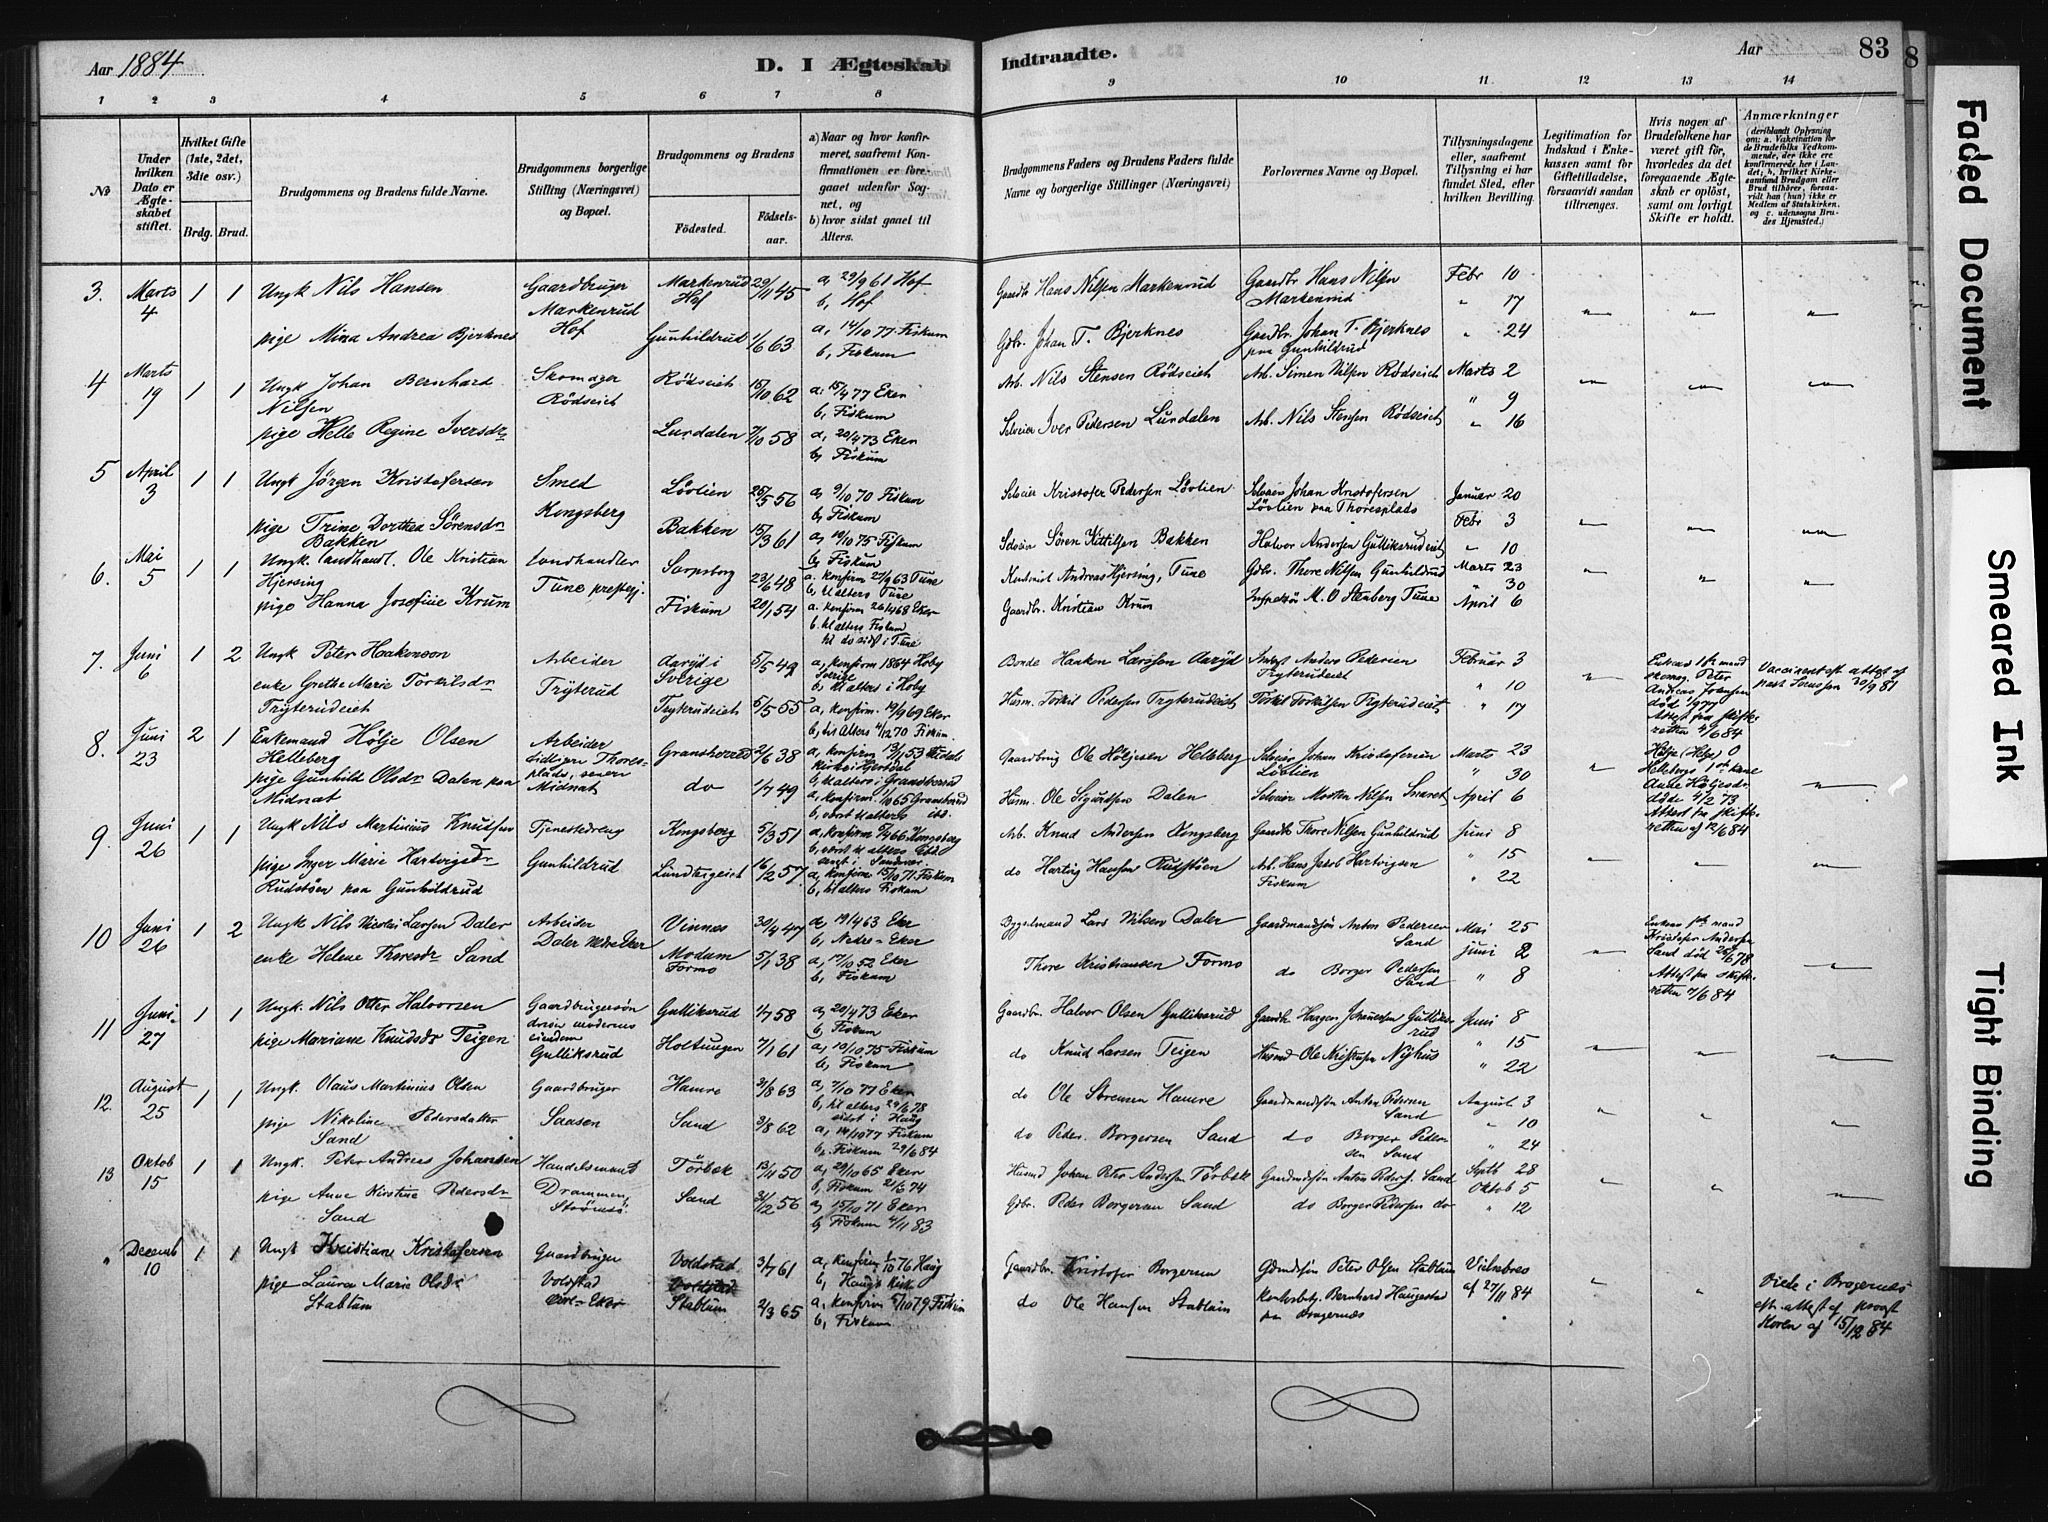 Aar 1884
D. I Ægteskab
Indtraadte.
Aar
83
8
1 2 3 4 5 6 7 8 9 10 11 12 13 14
No
Under hvilken Dato er Ægteskabet stiftet.
Hvilket Gifte (1ste, 2det, 3die osv.)
Brdg. Brud.
Brudgommens og Brudens fulde Navne.
Brudgommens borgerlige Stilling (Næringsvei) og Bopæl.
Brudgommens og Brudens
Födested.
Födselsaar.
a) Naar og hvor konfirmeret, saafremt Konfirmationen er foregaaet udenfor Sognet, og
b) hvor sidst gaaet til Alters.
Brudgommens Faders og Brudens Faders fulde Navne og borgerlige Stillinger (Næringsvei)
Forlovernes Navne og Bopæl.
Tillysningsdagene eller, saafremt Tillysning ei har fundet Sted, efter hvilken Bevilling.
Legitimation for Indskud i Enkekassen samt for Giftetilladelse, forsaavidt saadan tiltrænges.
Hvis nogen af Brudefolkene har været gift før, hvorledes da det foregaaende Ægteskab er oplöst, samt om lovligt Skifte er holdt.
Anmærkninger (deriblandt Oplysning om: a. Vakcination for Brudefolks Vedkommende, der ikke ere konfirmerede her i Landet; b. hvilket Kirkesamfund Brudgom eller Brud tilhörer, forsaavidt han (hun) ikke er Medlem af Statskirken, og c. udensogns Brudes Hjemsted.)
3. Marts 4 1 1 Ungk Nils Hansen Gaardbruger Markenrud Hof Markenrud Hof 29/11 45 a, 29/9 61 Hof b, Hof Gaardb Hans Nilsen Markenrud Gaardbr Hans Nilsen Markenrud Febr 10 " 17
pige Mina Andrea Bjerknes Gunhildrud 1/6 63 a, 14/10 77 Fiskum b, Fiskum Gdbr. Johan T. Bjerknes Gaardbr. Johan T. Bjerknes paa Gunhildrud " 24
4 Marts 19 1 1 Ungk Johan Bernhard Nilsen Skomager Rödseiet Rödseiet 15/10 62 a, 15/4 77 Eker b, Fiskum Arb. Nils Stensen Rödseiet Arb. Simen Nilsen Rödseiet Marts 2 " 9
pige Helle Regine Iversdr Lurdalen 7/10 58 a, 20/4 73 Eker b, Fiskum Selveier Iver Pedersen Lurdalen Arb. Nils Stensen Rödseiet " 16
5 April 3 1 1 Ungk Jörgen Kristofersen Smed Kongsberg Lövlien 25/5 56 a, 9/10 70 Fiskum b, Fiskum Selveier Kristofer Pedersen Lövlien Selveier Johan Kristofersen Lövlien paa Thoresplads Januar 20 Febr 3
pige Trine Dorthea Sörensdr Bakken Bakken 15/3 61 a, 10/10 75 Fiskum b, Fiskum Selveier Sören Kittilsen Bakken Halvor Andersen Gulliksrudeiet " 10
6. Mai 5 1 1 Ungk. Landhandl. Ole Kristian Hjersing Landhandler Tune prestegj. Sarpsborg 23/6 48 a. konfirm 27/9 63 Tune b, til alters Tune Andreas Hjersing, Tune Gdbr. Thore Nilsen Gunhildrud Marts 23 " 30
pige Hanna Josefine Krum Fiskum 20/1 54 a. konfirm 26/4 68 Eker b. til alters Fiskum Gaardbr. Kristian Krum M. O Stenberg Tune April 6
7. Juni 6 1 2 Ungk Peter Haakonson Arbeider Tryterud Aaryd i Sverige 5/5 49 a, konfirm 1864 Hoby Sverige b, til alters i Hoby Bonde Haaken Larsson Aaryd Anders Pedersen Tryterudeiet Februar 3 " 10
enke Grethe Marie Torkilsdr Tryterudeiet Tryterudeiet 5/5 55 a, konfirm. 19/9 69 Eker b, til Alters 4/12 70 Fiskum. Husm. Torkil Pedersen Tryterudeiet Torkil Torkilsen Tryterudeiet " 17
Enkens 1ste mand skomag. Peter Andreas Joansen död 1/9 77 Attest fra skifteretten 4/6 84
Vaccinenteret attest af 20/9 81
8. Juni 23 2 1 Enkemand Hölje Olsen Helleberg Arbeider tidligere Thoresplads, senere Midnat Gransherred 2/6 38 a, konfirm 13/11 53 Tudals kirke i Hjertdal b, til alters i Grandsherred Gaardbrug Ole Höljesen Helleberg Selveier Johan Kristofersen Lövlien Marts 23 " 30
pige Gunhild Olsdr Dalen paa Midnat do 1/7 49 a, konfirm. 1/10 65 Gransherud b, Husm. Ole Sigurdsen Dalen Selveier Morten Nilsen Snaret April 6
Hölje (Helje) O Hellebergs 1ste kone Aude Höljesdr döde 4/2 73 Attest fra skifteretten af 12/6 84
9. Juni 26 1 1 Ungk Nils Martinius Knutsen Tjenestedreng Gunhildrud Kongsberg 5/3 51 a, konfirm 66 Kongsberg b, Arb. Knud Andersen Kongsberg Gaardb Thore Nilsen Gunhildrud Juni 8 " 15
pige Inger Marie Hartvigsdr Rudstöen paa Gunhildrud 16/2 57 a, konfirm 15/10 71 Fiskum b, til alters Fiskum do Hartvig Hansen Rudstöen Arb. Hans Jakob Hartvigsen Fiskum " 22
10 Juni 26 1 2 Ungk Nils Nicolai Larsen Daler Arbeider Daler Nedre Eker Vinnæs 30/4 47 a, 19/4 63 Eker b, Nedre-Eker Bygselmand Lars Nilsen Daler Gaardmandsön Anton Pedersen Sand Mai 25 Juni 2
enke Helene Thoresdr Sand Modum Formo 5/1 38 a, 17/10 52 Eker b, Fiskum Thore Kristiansen Formo do Borger Pedersen Sand " 8
Enkens 1ste mand Kristofer Andersen Sand död 25/6 78 Attest fra skifteretten 7/6 84
11 Juni 27 1 1 Ungk. Nils Otter Halvorsen Gaardbrugersön moderens eiendom Gulliksrud Gulliksrud 1/7 58 a, 20/4 73 Eker b, Fiskum Gaardbr. Halvor Olsen Gulliksrud Gaardb. Haagen Johannesen Gulliksrud Juni 8 " 15
pige Mariane Knudsdr Teigen Holtungen 7/1 61 a, 10/10 75 Fiskum b, Fiskum do Knud Larsen Teigen Husmd Ole Nyhus " 22
12. August 25 1 1 Ungk. Olaus Martinius Olsen Gaardbruger Saasen Hamre 31/8 63 a, 7/10 77 Eker b, til alters 29/6 78 sidst i Haug do Ole Sörensen Hamre Gaardmandsön Anton Pedersen Sand August 3 " 10
pige Nikoline Pedersdatter Sand Sand 3/8 62 a, 14/10 77 Fiskum b, Fiskum 29/6 84 do Peder Borgersen Sand do Borger Pedersen Sand " 24
13 Oktob 15 1 1 Ungk. Peter Andreas Johansen Handelsmand Drammen, Strömsö Törbæk 13/11 50 a, 29/10 65 Eker b, Fiskum 21/6 74 Husmd Johan Peter Andersen Törbæk Gaardmdsön Anton Peders. Sand Septb 28 Oktob 5
pige Anne Kirstine Pedersdr Sand Sand 31/12 56 a, 15/10 71 Eker b, Fiskum 4/11 83 Gdbr. Peder Borgersen Sand do Borger Pedersen do " 12
" Decemb 10 1 1 Ungk Kristiane Kristofersen Gaardbruger Voldstad Voldstad 3/7 61 a, konfirm 1/10 76 Haug b, Haugs kirke Gaardbr. Kristofer Borgersen Gdmdsön Peter Olsen Stablum Vielsesbrev af 27/11 84
pige Laura Marie Olsdr Stablum Stablum 2/3 65 a, konfirm 5/10 79 Fiskum b, Fiskum do Ole Hansen Stablum Bernhard Haugestad paa Bragernæs
Viede i Bragernæs eft. attest af provst Koren af 15/12 84
Faded Document
Smeared Ink
Tight Binding